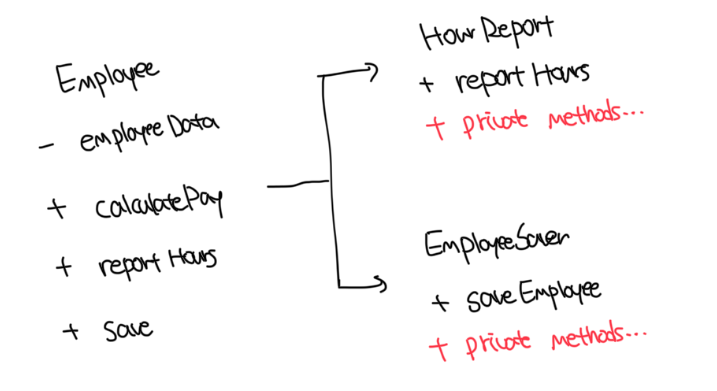 Employee
- employeeData
+ calculatePay
+ report Hours
+ save
HourReport
+ report Hours
+ private methods...
EmployeeSaver
+ saveEmployee
+ private methods...